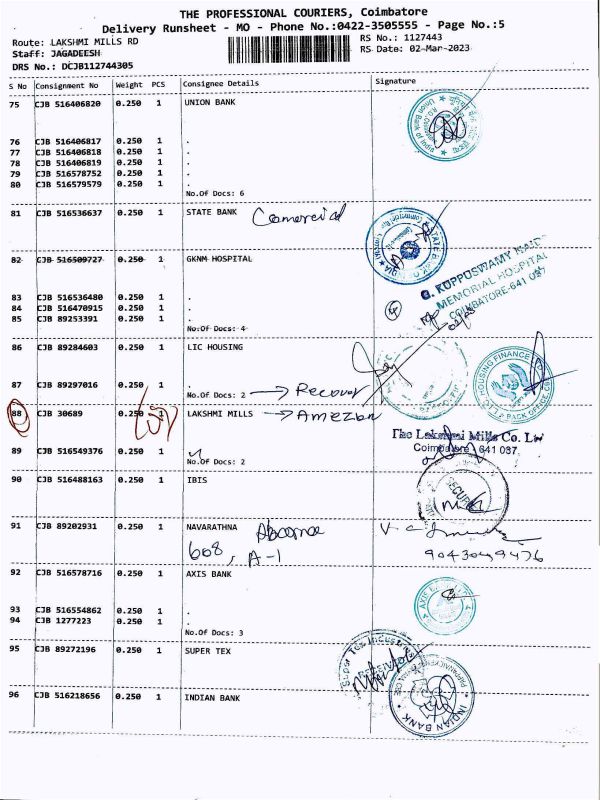 THE PROFESSIONAL COURIERS, Coimbatore
Delivery Runsheet - MO - Phone No.:0422-3505555 - Page No.:5
Route: LAKSHMI MILLS RD
RS No.: 1127443
Staff: JAGADEESH
RS Date: 02-Mar-2023
DRS No.: DCJB112744305
S No Consignment No Weight PCS Consignee Details Signature
75 CJB 516406820 0.250 1 UNION BANK
76 CJB 516406817 0.250 1 .
77 CJB 516406818 0.250 1 .
78 CJB 516406819 0.250 1 .
79 CJB 516578752 0.250 1 .
80 CJB 516579579 0.250 1 .
No.Of Docs: 6
81 CJB 516536637 0.250 1 STATE BANK Comercial
82 CJB 516509727 0.250 1 GKNM HOSPITAL
G. KUPPUSWAMY NAIDU
MEMORIAL HOSPITAL
COIMBATORE-641 037
83 CJB 516536480 0.250 1 .
84 CJB 516470915 0.250 1 .
85 CJB 89253391 0.250 1 .
No.Of Docs: 4
86 CJB 89284603 0.250 1 LIC HOUSING
LIC HOUSING FINANCE
87 CJB 89297016 0.250 1 .
No.Of Docs: 2 Recover
88 CJB 30689 0.250 1 LAKSHMI MILLS Amezon
The Lakshmi Mills Co. Ltd
Coimbatore 641 037.
89 CJB 516549376 0.250 1
No.Of Docs: 2
SECURITY
90 CJB 516488163 0.250 1 IBIS
91 CJB 89202931 0.250 1 NAVARATHNA
608, A-1
92 CJB 516578716 0.250 1 AXIS BANK
AXIS
93 CJB 516554862 0.250 1 .
94 CJB 1277223 0.250 1 .
No.Of Docs: 3
95 CJB 89272196 0.250 1 SUPER TEX
Super Tex Industries
96 CJB 516218656 0.250 1 INDIAN BANK
INDIAN BANK